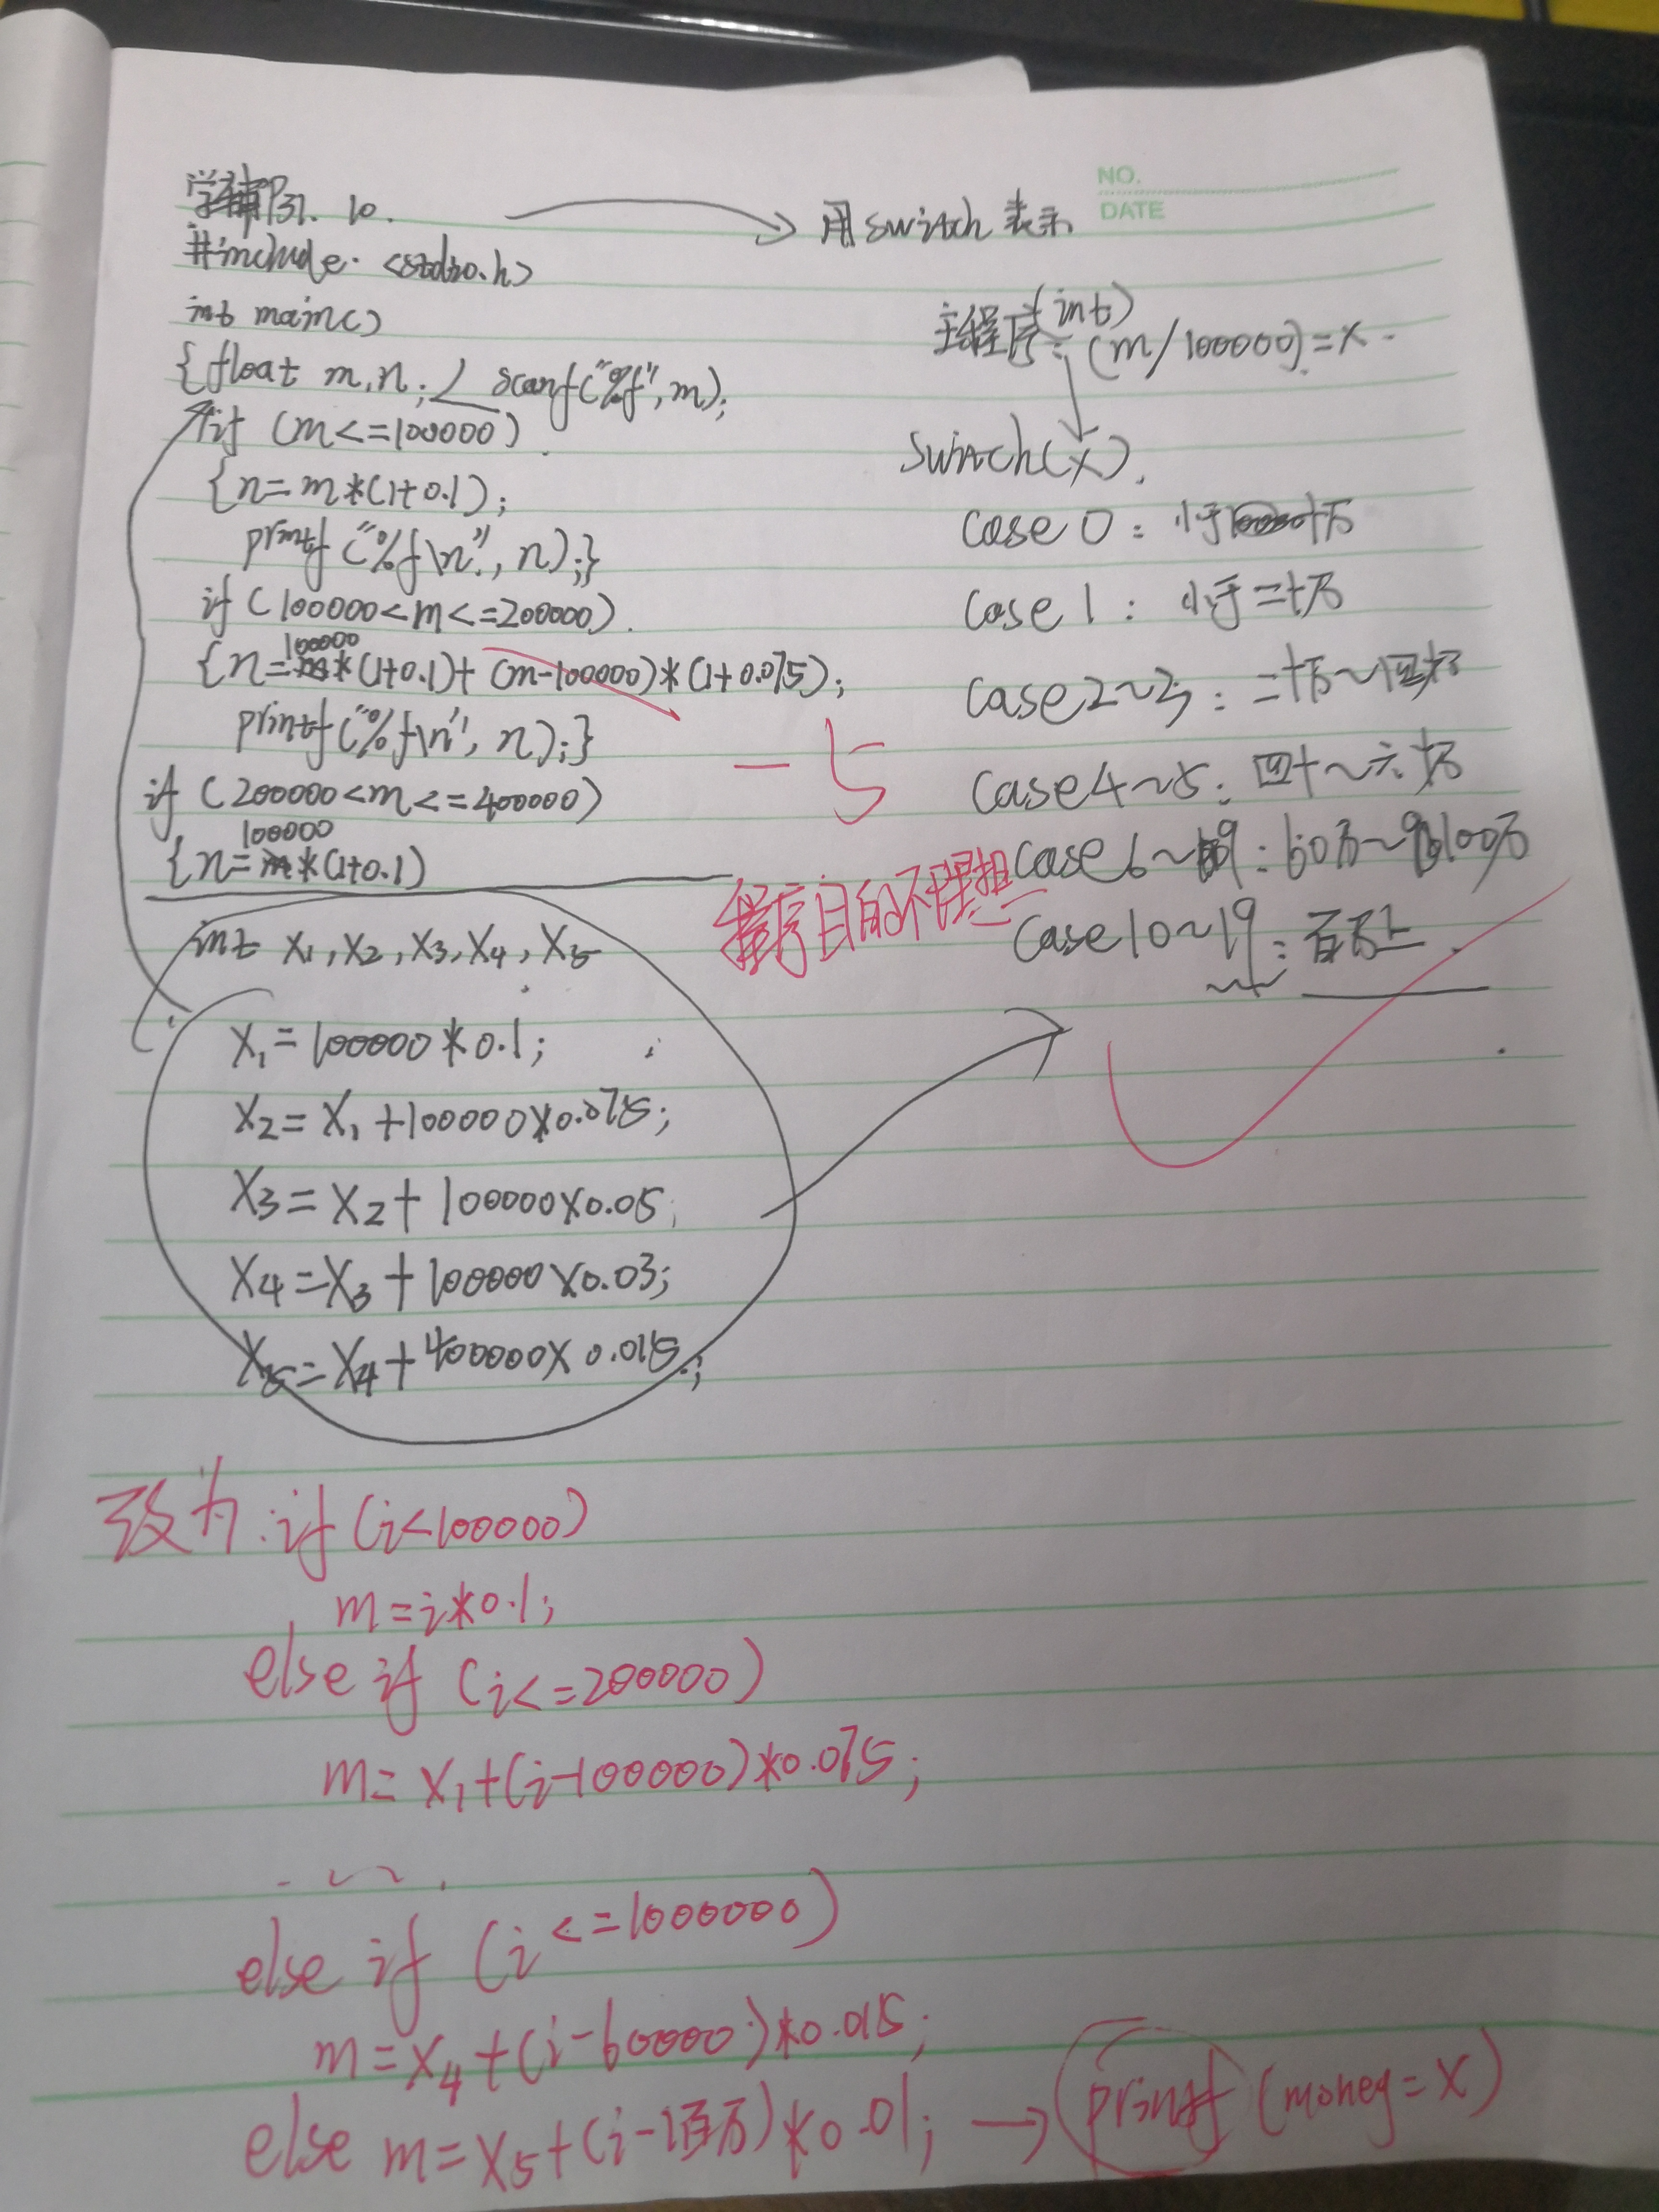 P31. 10.
用switch表示
NO.
DATE
#include <stdio.h>
int main()
{float m,n; scanf("%f",m);
if (m<=100000)
{n=m*(1+0.1);
printf("%f\n", n);}
if (100000<m<=200000)
{n=100000*(1+0.1)+(m-100000)*(1+0.075);
printf("%f\n", n);}
if (200000<m<=400000)
{n=100000*(1+0.1)
int x1,x2,x3,x4,x5
x1=100000*0.1;
x2=x1+100000×0.075;
x3=x2+100000×0.05;
x4=x3+100000×0.03;
x5=x4+400000×0.015;
主程序:(int)(m/100000)=x
switch(x).
case 0: 小于十万
case 1: 小于二十万
case2~3: 二十万~四十万
case4~5: 四十~六十万
case6~9: 60万~100万
case10~19: 百万上.
-5
程序目的不理想
改为: if (i<100000)
m=i*0.1;
else if (i<=200000)
m=x1+(i-100000)*0.075;
else if (i<=1000000)
m=x4+(i-60000)*0.015;
else m=x5+(i-1百万)*0.01; → printf (money=x)